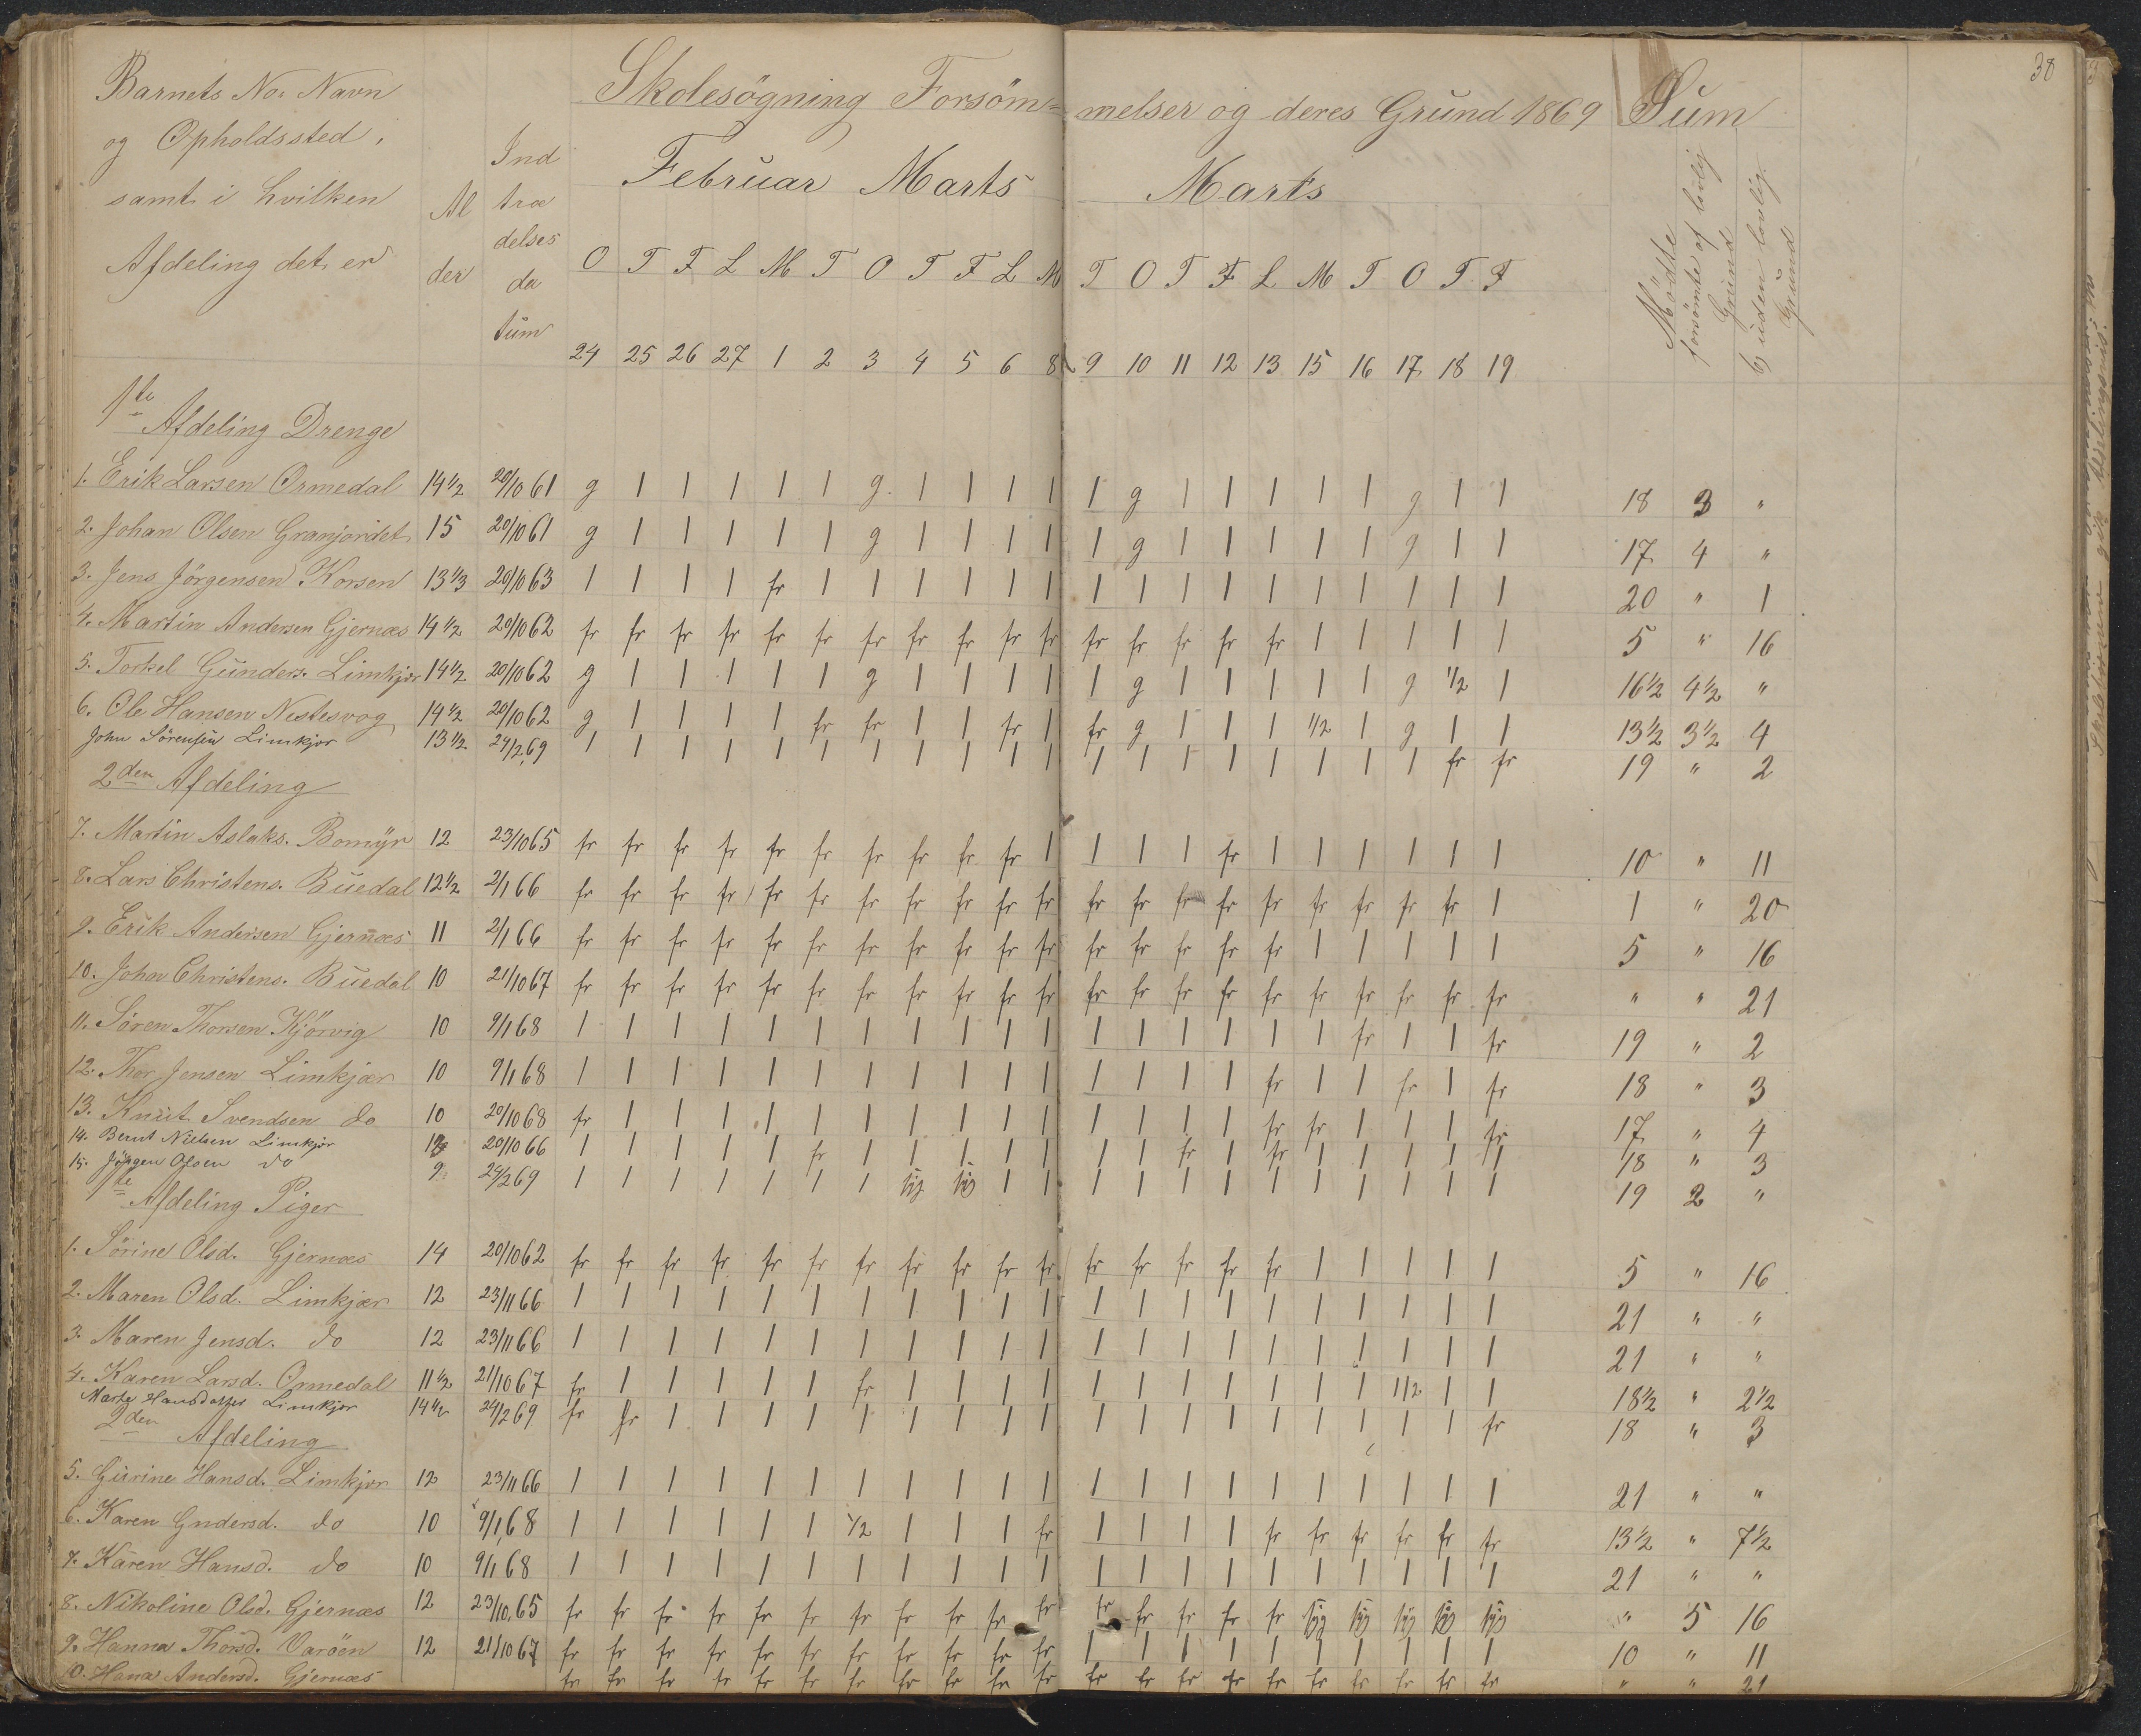 38
Barnets No: Navn
og Opholdssted,
samt i hvilken
Afdeling det er
Al
der
Ind
træ
delses
da
tum
Skolesögning Forsöm=
melser og deres Grund 1869
Februar Marts
Marts
Sum
Mödte
forsömte af lovlig
Grund
uden lovlig
Grund
O T F L M T O T F L M T O T F L M T O T F
24 25 26 27 1 2 3 4 5 6 8 9 10 11 12 13 15 16 17 18 19
1te Afdeling Drenge
1. Erik Larsen Ormedal 14 1/2 20/10 61 g 1 1 1 1 1 g 1 1 1 1 1 g 1 1 1 1 1 g 1 1 18 3 "
2. Johan Olsen Granjordet 15 20/10 61 g 1 1 1 1 1 g 1 1 1 1 1 g 1 1 1 1 1 g 1 1 17 4 "
3. Jens Jörgensen Korsen 13 1/3 20/10 63 1 1 1 1 fr 1 1 1 1 1 1 1 1 1 1 1 1 1 1 1 1 20 " 1
4. Martin Andersen Gjernæs 14 1/2 20/10 62 fr fr fr fr fr fr fr fr fr fr fr fr fr fr fr fr 1 1 1 1 1 5 " 16
5. Torkel Gunders. Limkjær 14 1/2 20/10 62 g 1 1 1 1 1 g 1 1 1 1 1 g 1 1 1 1 1 g 1/2 1 16 1/2 4 1/2 "
6. Ole Hansen Nestesvog 14 1/2 20/10 62 g 1 1 1 1 fr fr 1 1 fr 1 fr g 1 1 1 1/2 1 g 1 1 13 1/2 3 1/2 4
John Sörensen Limkjær 13 1/2 24/2 69 1 1 1 1 1 1 1 1 1 1 1 1 1 1 1 1 1 1 1 fr fr 19 " 2
2den Afdeling
7. Martin Aslaks. Bomyr 12 23/10 65 fr fr fr fr fr fr fr fr fr fr 1 1 1 1 fr 1 1 1 1 1 1 10 " 11
8. Lars Christens. Buedal 12 1/2 2/1 66 fr fr fr fr fr fr fr fr fr fr fr fr fr fr fr fr fr fr fr fr 1 1 " 20
9. Erik Andersen Gjernæs 11 2/1 66 fr fr fr fr fr fr fr fr fr fr fr fr fr fr fr fr 1 1 1 1 1 5 " 16
10. John Christens. Buedal 10 21/10 67 fr fr fr fr fr fr fr fr fr fr fr fr fr fr fr fr fr fr fr fr fr " " 21
11. Sören Thorsen Kjörvig 10 9/1 68 1 1 1 1 1 1 1 1 1 1 1 1 1 1 1 1 1 fr 1 1 fr 19 " 2
12. Thor Jensen Limkjær 10 9/1 68 1 1 1 1 1 1 1 1 1 1 1 1 1 1 1 fr 1 1 fr 1 fr 18 " 3
13. Knut Svendsen do 10 20/10 68 fr 1 1 1 1 1 1 1 1 1 1 1 1 1 1 fr fr 1 1 1 fr 17 " 4
14. Bernt Nielsen Limkjær 20/10 66 1 1 1 1 1 fr 1 1 1 1 1 1 1 fr 1 fr 1 1 1 1 1 18 " 3
15. Jörgen Olsen do 9 24/2 69 1 1 1 1 1 1 1 syg syg 1 1 1 1 1 1 1 1 1 1 1 1 19 2 "
1te Afdeling Piger
1. Sörine Olsd. Gjernæs 14 20/10 62 fr fr fr fr fr fr fr fr fr fr fr fr fr fr fr fr 1 1 1 1 1 5 " 16
2. Maren Olsd. Limkjær 12 23/11 66 1 1 1 1 1 1 1 1 1 1 1 1 1 1 1 1 1 1 1 1 1 21 " "
3. Maren Jensd. do 12 23/11 66 1 1 1 1 1 1 1 1 1 1 1 1 1 1 1 1 1 1 1 1 1 21 " "
4. Karen Larsd. Ormedal 11 1/2 21/10 67 fr 1 1 1 1 1 fr 1 1 1 1 1 1 1 1 1 1 1 1/2 1 1 18 1/2 " 2 1/2
Marte Hansdatter Limkjær 14 1/2 24/2 69 fr fr 1 1 1 1 1 1 1 1 1 1 1 1 1 1 1 1 1 1 fr 18 " 3
2den Afdeling
5. Gurine Hansd. Limkjær 12 23/11 66 1 1 1 1 1 1 1 1 1 1 1 1 1 1 1 1 1 1 1 1 1 21 " "
6. Karen Gndersd. do 10 9/1 68 1 1 1 1 1 1 1/2 1 1 1 fr 1 1 1 1 fr fr fr fr fr fr 13 1/2 " 7 1/2
7. Karen Hansd. do 10 9/1 68 1 1 1 1 1 1 1 1 1 1 1 1 1 1 1 1 1 1 1 1 1 21 " "
8. Nikoline Olsd. Gjernæs 12 23/10 65 fr fr fr fr fr fr fr fr fr fr fr fr fr fr fr fr syg syg syg syg syg " 5 16
9. Hanna Thorsd. Varöen 12 21/10 67 fr fr fr fr fr fr fr fr fr fr fr 1 1 1 1 1 1 1 1 1 1 10 " 11
10. Hana Andersd. Gjernæs fr fr fr fr fr fr fr fr fr fr fr fr fr fr fr fr fr fr fr fr fr " " 21